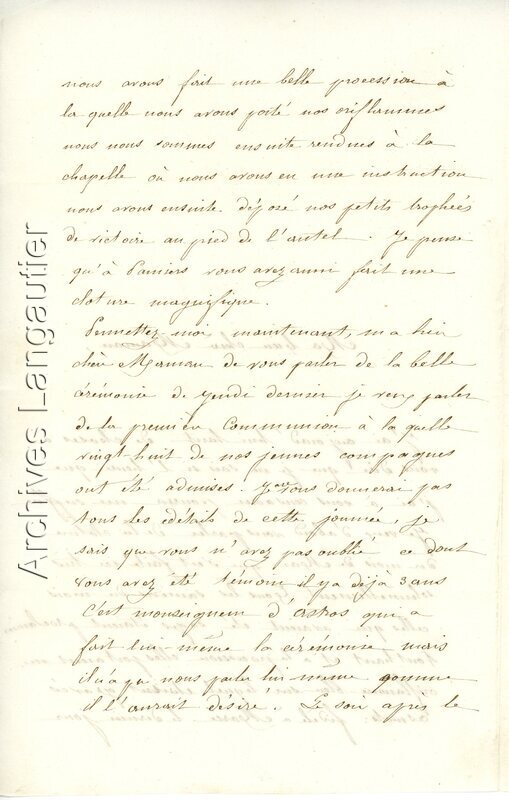 nous avons fait une belle procession à
la quelle nous avons porté nos oriflammes
nous nous sommes ensuite rendues à la
chapelle où nous avons eu une instruction
nous avons ensuite déposé nos petits trophées
de victoire au pied de l'autel. Je pense
qu'à Pamiers vous avez aussi fait une
cloture magnifique.
Permettez-moi maintenant, ma bien
chère Maman de vous parler de la belle
cérémonie de jeudi dernier je veux parler
de la première Communion à la quelle
vingt huit de nos jeunes compagnes
ont été admises. Je ne vous donnerai pas
tous les détails de cette journée, je
sais que vous n'avez pas oublié ce dont
vous avez été témoin il y a déjà 3 ans
C'est monseigneur d'Astros qui a
fait lui-même la cérémonie mais
il n'a pu nous parler lui même comme
il l'aurait désiré. Le soir après le
Archives Langautier